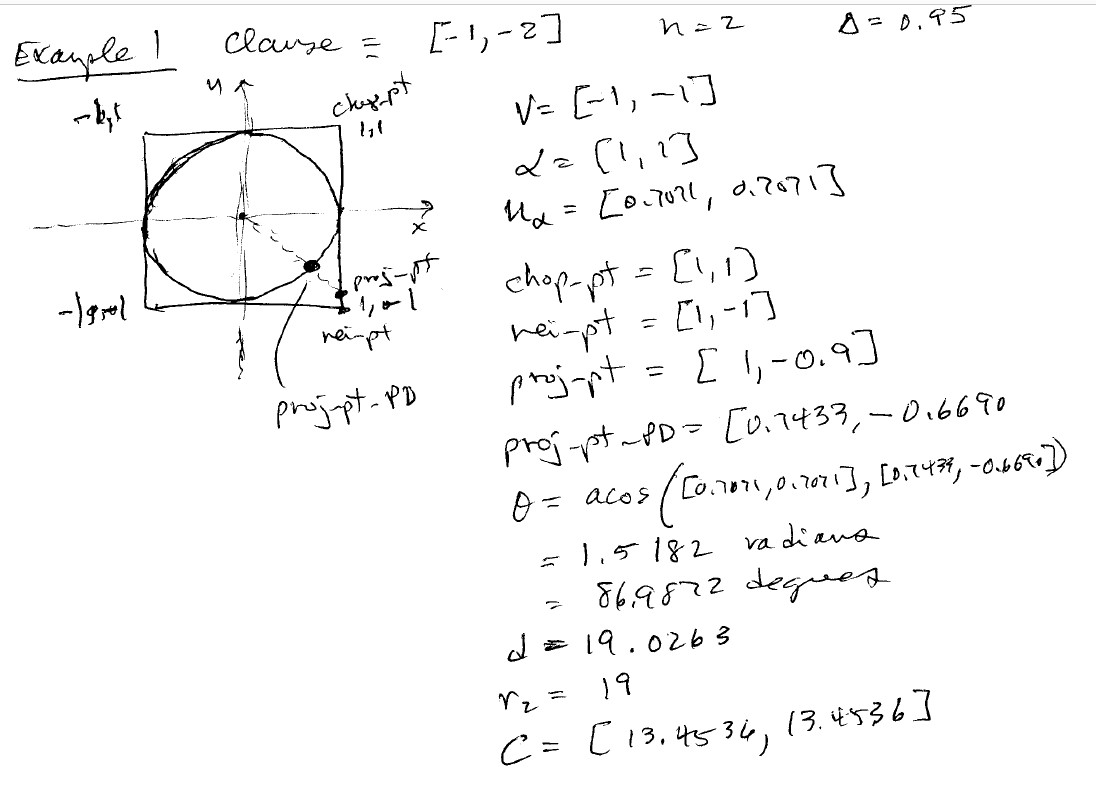 Example 1 Clause ≡ [-1, -2] n=2 Δ = 0.95
y
chop-pt
1,1
x
proj-pt
nei-pt
proj-pt-PD
V = [-1, -1]
α = [1, 1]
u_α = [0.7071, 0.7071]
chop-pt = [1, 1]
nei-pt = [1, -1]
proj-pt = [ 1, -0.9]
proj-pt-PD = [0.7433, -0.6690
θ = acos([0.7071, 0.7071], [0.7433, -0.6690])
= 1.5182 radians
= 86.9872 degrees
d = 19.0263
r₂ = 19
C = [ 13.4536, 13.4536]